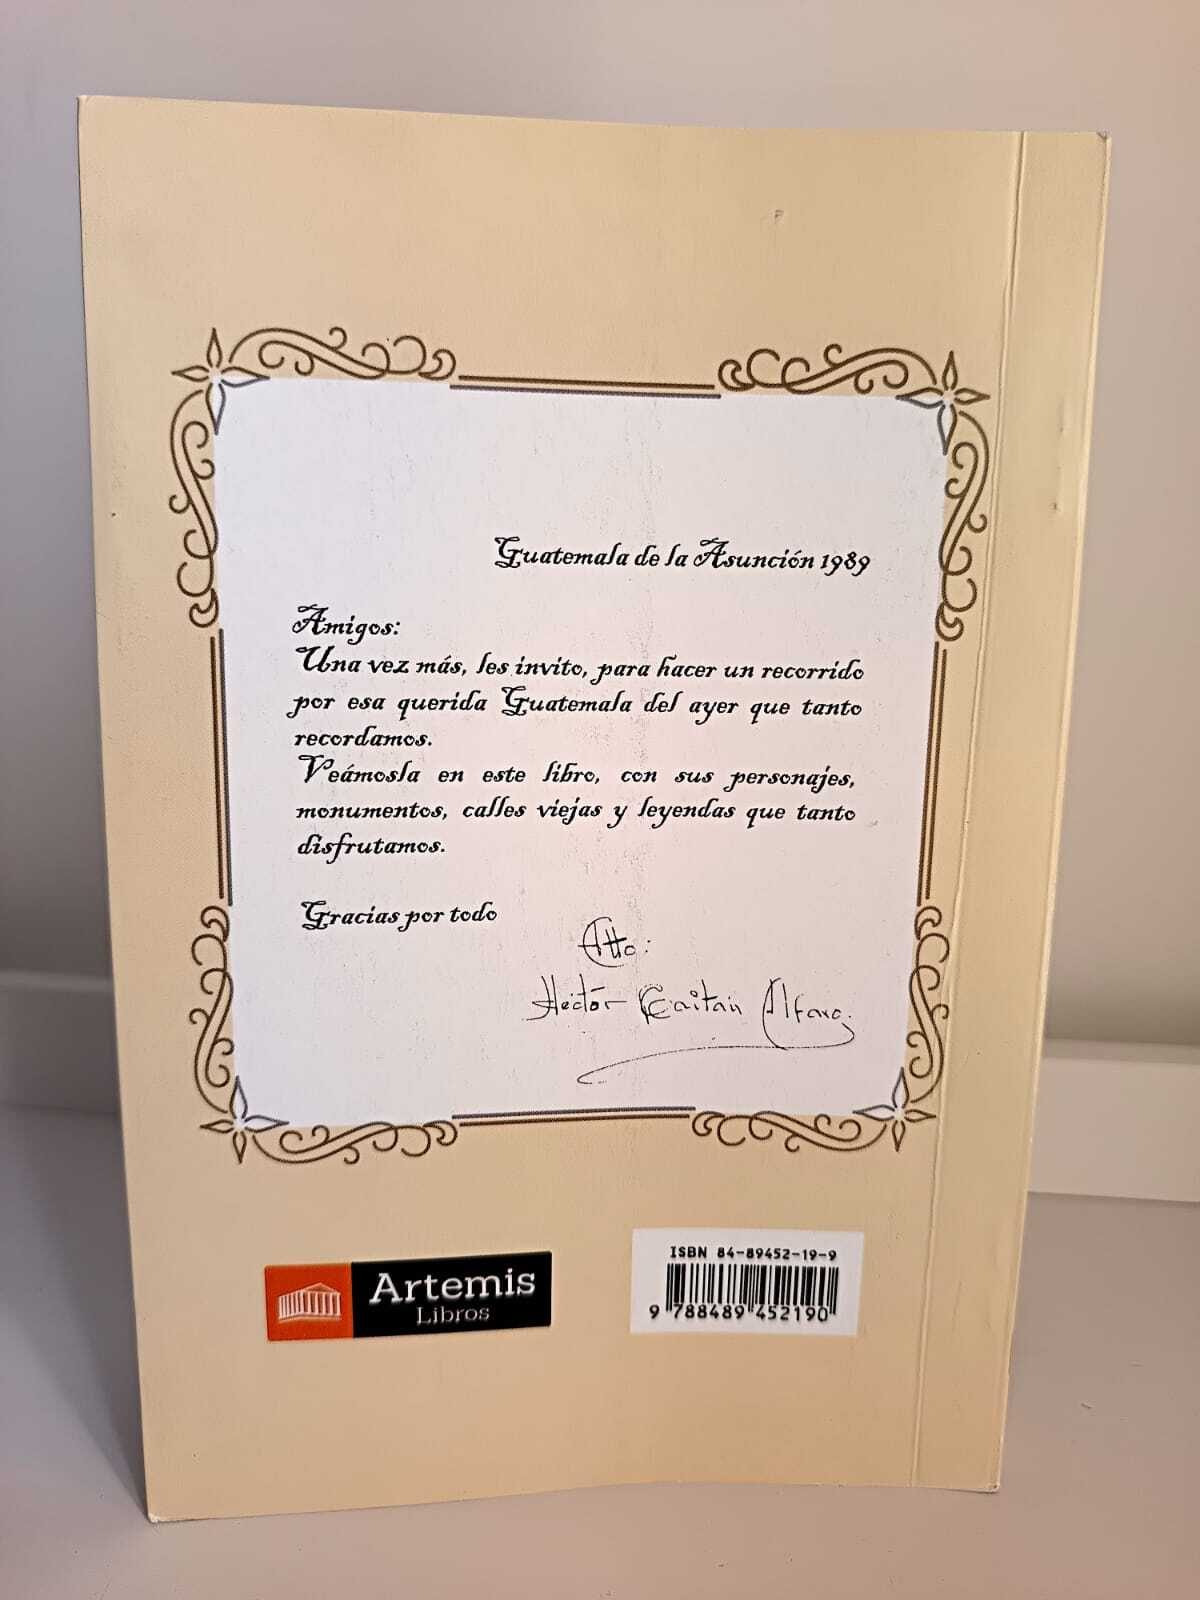 Guatemala de la Asunción 1989
Amigos:
Una vez más, les invito, para hacer un recorrido
por esa querida Guatemala del ayer que tanto
recordamos.
Veámosla en este libro, con sus personajes,
monumentos, calles viejas y leyendas que tanto
disfrutamos.
Gracias por todo
Atto:
Héctor Gaitán Alfaro.
Artemis
Libros
ISBN 84-89452-19-9
9 788489 452190